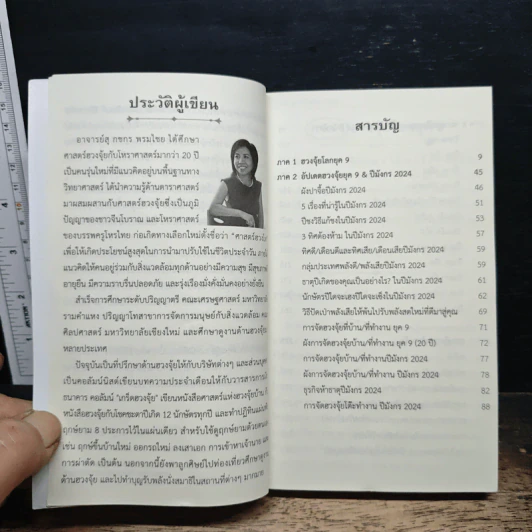 ประวัติผู้เขียน
อาจารย์สุ กชกร พรมไชย ได้ศึกษา
ศาสตร์ฮวงจุ้ยกับโหราศาสตร์มากว่า 20 ปี
เป็นคนรุ่นใหม่ที่มีแนวคิดอยู่บนพื้นฐานทาง
วิทยาศาสตร์ ได้นำความรู้ด้านดาราศาสตร์
มาผสมผสานกับศาสตร์ฮวงจุ้ยซึ่งเป็นภูมิ
ปัญญาของชาวจีนโบราณ และโหราศาสตร์
ของบรรพครูไทย ก่อเกิดทางเลือกใหม่ตั้งชื่อว่า "ศาสตร์ฮวงจุ้ย
เพื่อให้เกิดประโยชน์สูงสุดในการนำมาปรับใช้ในชีวิตประจำวัน ภายใต้
แนวคิดให้คนอยู่ร่วมกับสิ่งแวดล้อมทุกด้านอย่างมีความสุข มีสุขภาพ
อายุยืน มีความราบรื่นปลอดภัย และรุ่งเรืองมั่งคั่งมั่นคงอย่างยั่งยืน
สำเร็จการศึกษาระดับปริญญาตรี คณะเศรษฐศาสตร์ มหาวิทยาลัย
รามคำแหง ปริญญาโทสาขาการจัดการมนุษย์กับสิ่งแวดล้อม คณะ
ศิลปศาสตร์ มหาวิทยาลัยเชียงใหม่ และศึกษาดูงานด้านฮวงจุ้ย
หลายประเทศ
ปัจจุบันเป็นที่ปรึกษาด้านฮวงจุ้ยให้กับบริษัทต่างๆ และส่วนบุคคล
เป็นคอลัมน์นิสต์เขียนบทความประจำเดือนให้กับวารสารการเงิน
ธนาคาร คอลัมน์ "เกร็ดฮวงจุ้ย" เขียนหนังสือศาสตร์แห่งฮวงจุ้ยบ้าน
หนังสือฮวงจุ้ยกับโชคชะตาปีเกิด 12 นักษัตรทุกปี และทำปฏิทิน
ฤกษ์ยาม 8 ประการไว้ในแผ่นเดียว สำหรับใช้ดูฤกษ์ยามด้วยตนเอง
เช่น ฤกษ์ขึ้นบ้านใหม่ ออกรถใหม่ ลงเสาเอก การเข้าหาเจ้านาย และ
การผ่าตัด เป็นต้น นอกจากนี้ยังพาลูกศิษย์ไปท่องเที่ยวศึกษาดูงาน
ด้านฮวงจุ้ย และไปทำบุญรับพลังนั่งสมาธิในสถานที่ต่างๆ มากมาย
สารบัญ
ภาค 1 ฮวงจุ้ยโลกยุค 9 9
ภาค 2 อัปเดตฮวงจุ้ยยุค 9 & ปีมังกร 2024 45
ผังปาจื้อปีมังกร 2024 46
5 เรื่องที่น่ารู้ในปีมังกร 2024 51
ปีชงวิธีแก้ชงในปีมังกร 2024 53
3 ทิศต้องห้าม ในปีมังกร 2024 57
ทิศดี/เดือนดีและทิศเสีย/เดือนเสียปีมังกร 2024 59
กลุ่มประเทศพลังดี/พลังเสียปีมังกร 2024 59
ธาตุปีเกิดของคุณเป็นอย่างไร? ในปีมังกร 2024 61
นักษัตรปีใดจะเฮงปีใดจะเซ็งในปีมังกร 2024 62
วิธีปัดเป่าพลังเสียให้พ้นไปรับพลังสดใหม่ที่ดีมาสู่คุณ 69
การจัดฮวงจุ้ยที่บ้าน/ที่ทำงาน ยุค 9 71
ผังการจัดฮวงจุ้ยบ้าน/ที่ทำงาน ยุค 9 (20 ปี) 72
การจัดฮวงจุ้ยบ้าน/ที่ทำงานปีมังกร 2024 77
ผังการจัดฮวงจุ้ยบ้าน/ที่ทำงาน ปีมังกร 2024 78
ธุรกิจห้าธาตุปีมังกร 2024 82
การจัดฮวงจุ้ยโต๊ะทำงาน ปีมังกร 2024 88